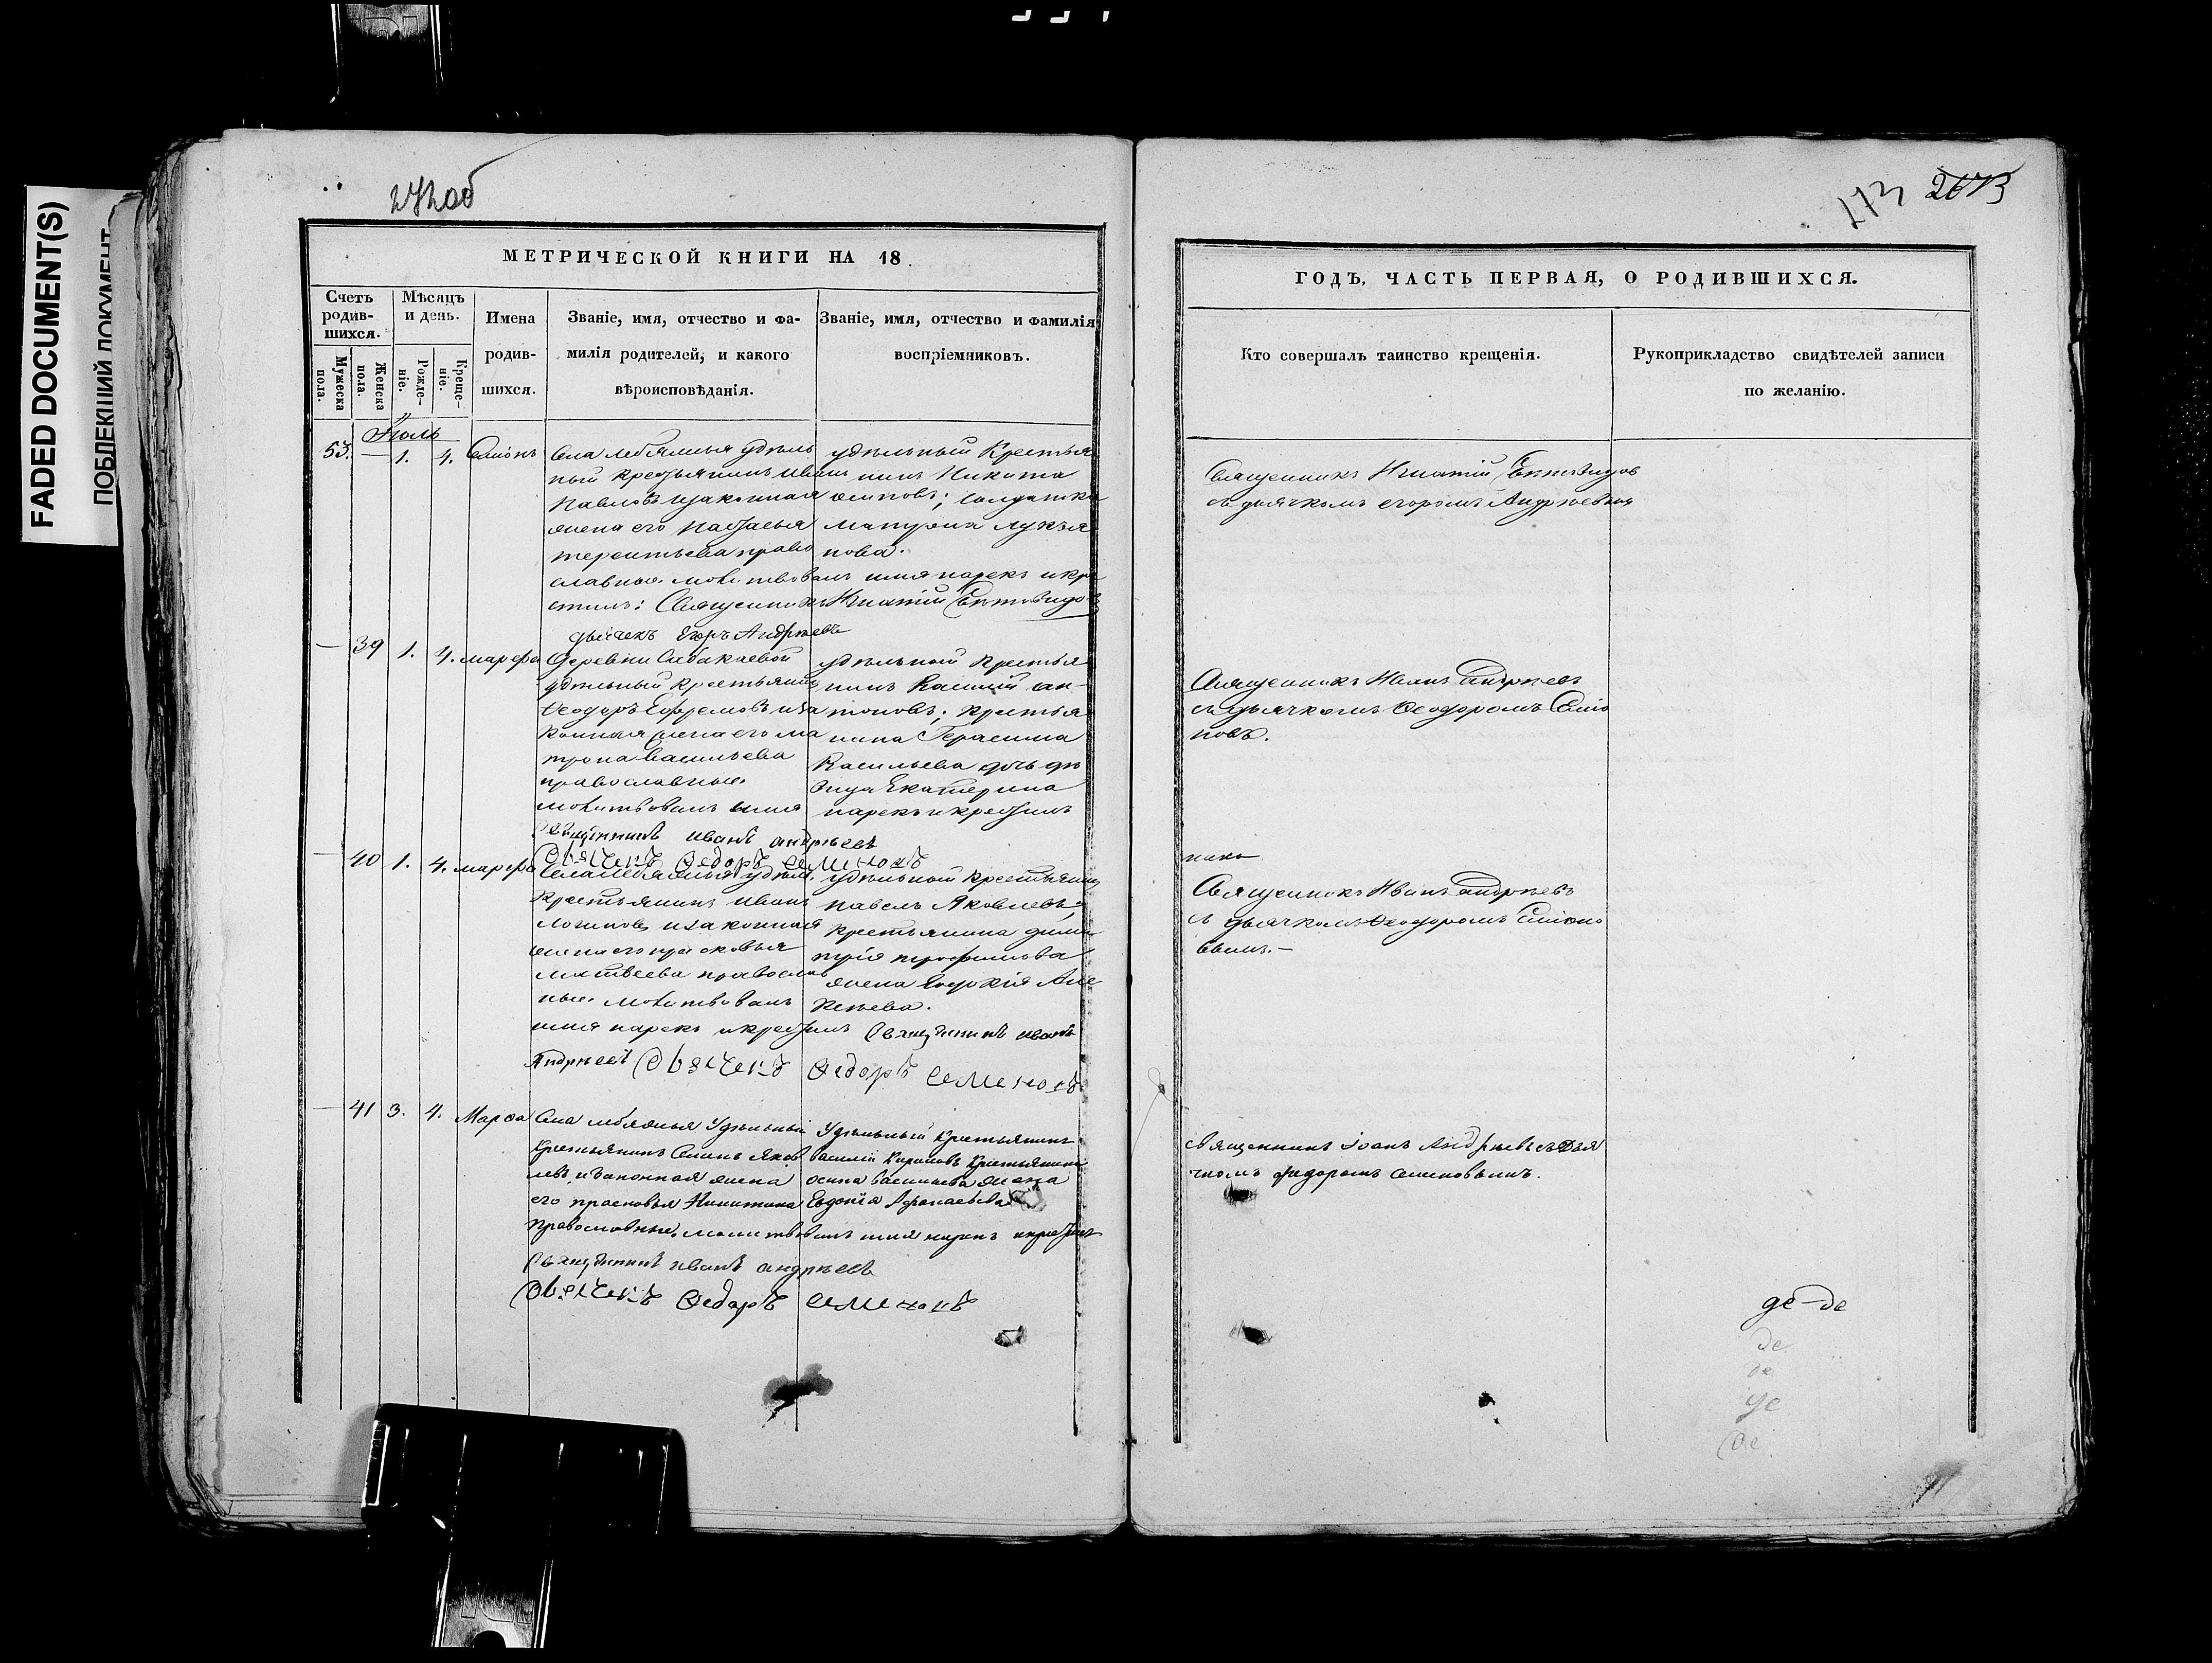 FADED DOCUMENT(S)
ПОБЛЕКШИЙ ДОКУМЕНТ
272об
273
МЕТРИЧЕСКОЙ КНИГИ НА 18
Счетъ родив-шихся.
Мужеска пола.
Женска пола.
Мѣсяцъ и день.
Рожде-ніе.
Креще-ніе.
Имена родив-шихся.
Званіе, имя, отчество и фа-
милія родителей, и какого
вѣроисповѣданія.
Званіе, имя, отчество и фамилія
воспріемниковъ.
Іюль
53. — 1. 4. Симіонъ
Села Лебяжья удѣль
ный крестьянинъ Иванъ
Павловъ и законная
жена его Настасья
терентьева право
славные. молитвовалъ имя нарекъ и кре
стилъ: Священникъ Игнатій
дьячекъ Егоръ Андрѣевъ
удѣльный Крестья
нинъ Никита
осиповъ; солдатка
Матрона Лукья
нова.
— 39 1. 4. марфа
Деревни
удѣльный крестьянинъ
Ѳеодоръ Ефремовъ и за
конная жена его ма
трона васильева
православные.
молитвовалъ имя
нарекъ и крестилъ
Священникъ иванъ андрѣевъ
Дьячекъ Ѳедоръ семеновъ
удѣльной крестья
нинъ Василій ан-
тоновъ; крестья
нина Герасима
Васильева дочь дѣ
вица Екатерина
— 40 1. 4. марфа
Села Лебяжья удѣль.
Крестьянинъ Иванъ
Логиновъ и законная
жена его прасковья
Матвеева православ
ные. молитвовалъ
имя нарекъ и крестилъ Священникъ иванъ
Андрѣевъ Дьячекъ Ѳедоръ семеновъ
удѣльной крестьянинъ
Павелъ Яковлевъ;
крестьянина дими
трія трофимова
жена Але
ксѣева.
— 41 3. 4. Марѳа
Села лебяжья Удѣльный
Крестьянинъ Семенъ Яков
левъ, и Законная жена
его прасковья Никитина
Православные, молитвовалъ имя нарекъ и крестилъ
Священникъ иванъ андрѣевъ
Дьячекъ Ѳедоръ семеновъ
Удѣльный Крестьянинъ
василій Кириловъ Крестьянина
осипа васильева жена
Евдокія Афонасьева
ГОДЪ, ЧАСТЬ ПЕРВАЯ, О РОДИВШИХСЯ.
Кто совершалъ таинство крещенія.
Рукоприкладство свидѣтелей записи
по желанію.
Священникъ Игнатій
съ дьячкомъ егоромъ Андрѣевымъ
Священникъ Иванъ андрѣевъ
съ дьячкомъ Ѳеодоромъ Симіо
новъ.
Священникъ Иванъ андрѣевъ
съ дьячкомъ Ѳеодоромъ Симіоно
вымъ.-
священникъ Іоанъ Андрѣевъ съ дья
чкомъ федоромъ семеновымъ.
де-де
де
де
де
де